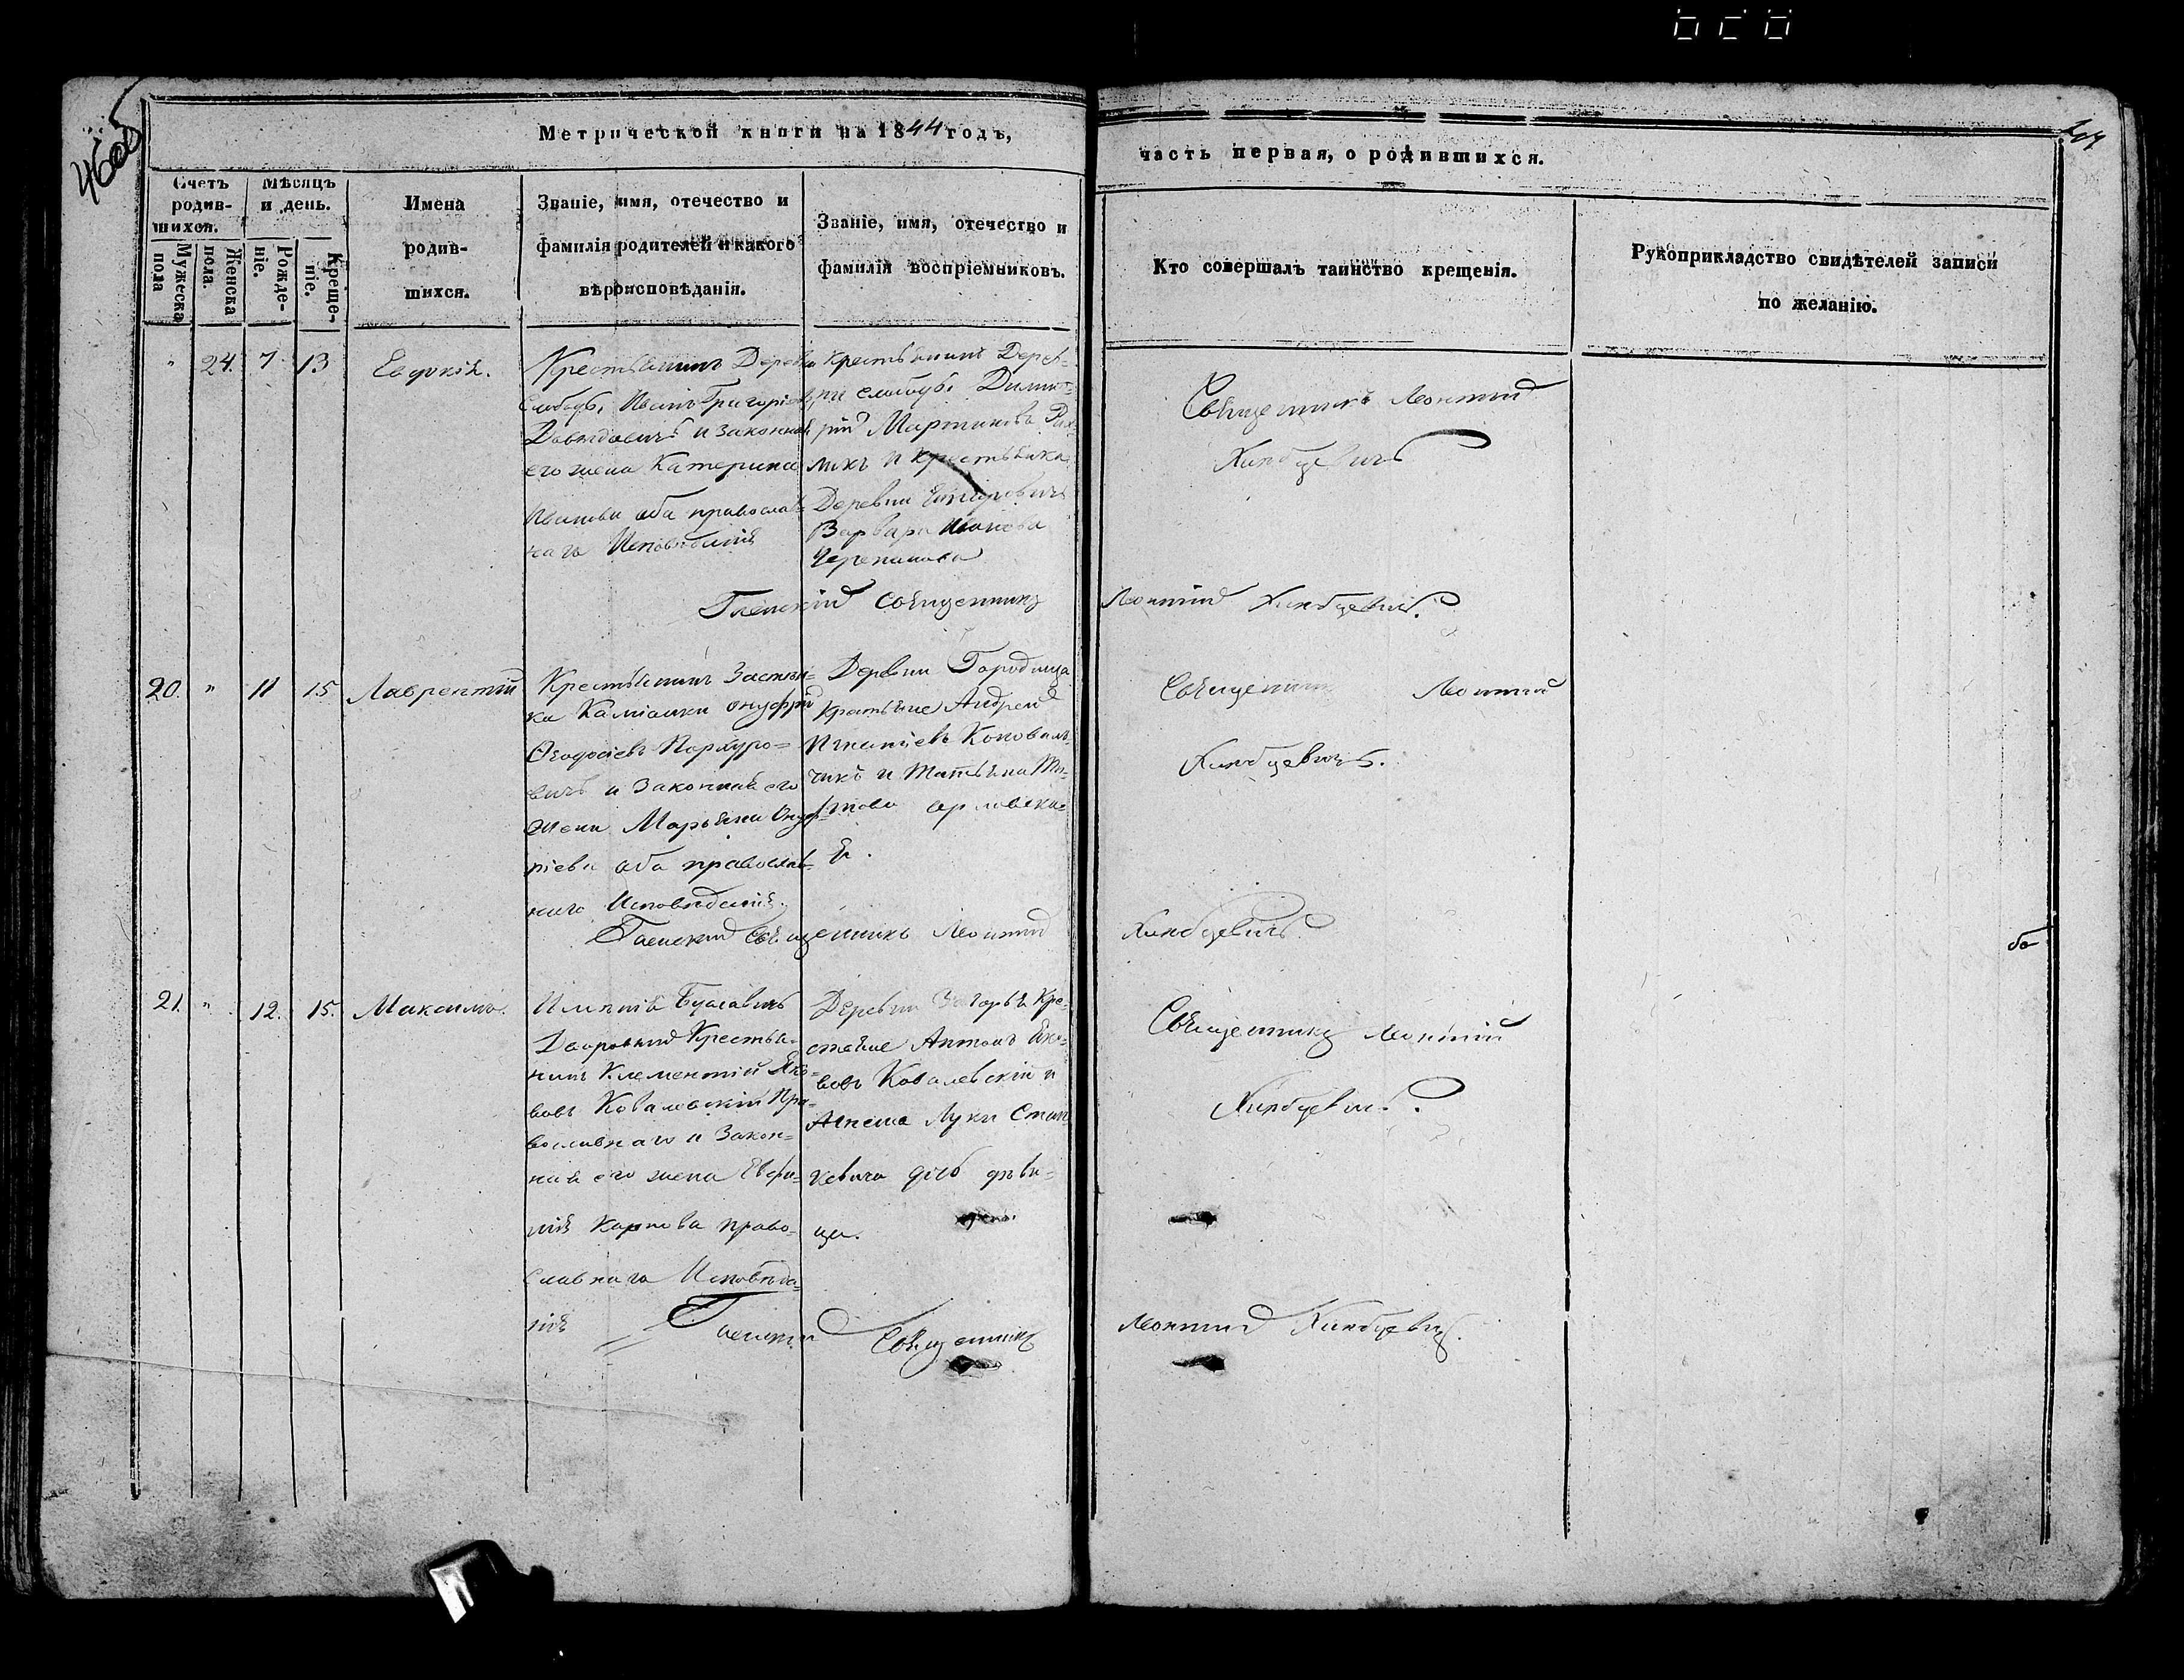 Метрической книги на 1844 годъ,
часть первая, о родившихся.
Счетъ родив-
шихся.
Мужеска пола
Женска пола.
Мѣсяцъ
и день.
Рожде-
ніе.
Креще-
ніе.
Имена
родив-
шихся.
Званіе, имя, отечество и
фамилія родителей и какого
вѣроисповѣданія.
Званіе, имя, отечество и
фамилія воспріемниковъ.
Кто совершалъ таинство крещенія.
Рукоприкладство свидѣтелей записи
по желанію.
" 24. 7. 13 Евдокія.
Крестьянинъ Деревни
Слободы Иванъ Григоріевъ
Давидовичъ и законная
его жена Катерина
Иванова оба православ-
наго Исповѣданія
Крестьянинъ Дерев-
ни слободы Димит-
рій Мартиновъ
и крестьянка
Деревни
Варвара Иванова
Черепанова
Священникъ Леонтій
Гаенскій Священникъ
Леонтій
20. " 11 15 Лаврентій
Крестьянинъ Застѣн-
ка Камiонки Онуфрій
Ѳеодосіевъ Пархуро-
вичъ и Законная его
жена Марьяна Онуф-
ріева оба православ-
наго Исповѣданія.
Деревни Городища
Крестьяне Андрей
Игнатіевъ Коноваль-
чикъ и Татьяна Ти-
това орловска-
я.
Священникъ Леонтій
Гаенскій Священникъ Леонтій
21. " 12. 15. Максимъ.
Имѣнія
Дворовый Крестья-
нинъ Климентій Яко-
вовъ Ковалевскій Пра-
вославнаго и Закон-
ная его жена Евфи-
мія Карпова право-
славнаго Исповѣда-
нія
Деревни Загорья Кре-
стьяне Антонъ Яко-
вовъ Ковалевскій и
Агнеша Луки Стан-
кевича дочь дѣви-
ца.
Священникъ Леонтій
Гаенскій Священникъ
Леонтій